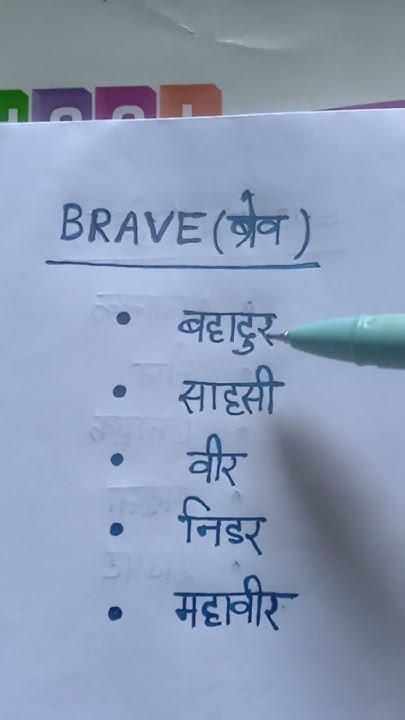 BRAVE (ब्रेव)
• बहादुर
• साहसी
• वीर
• निडर
• महावीर